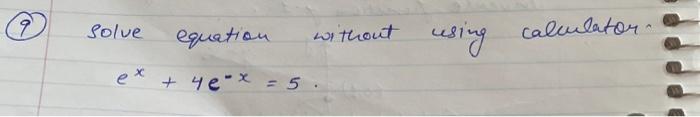 9 Solve equation without using calculator.
e^x + 4e^-x = 5.